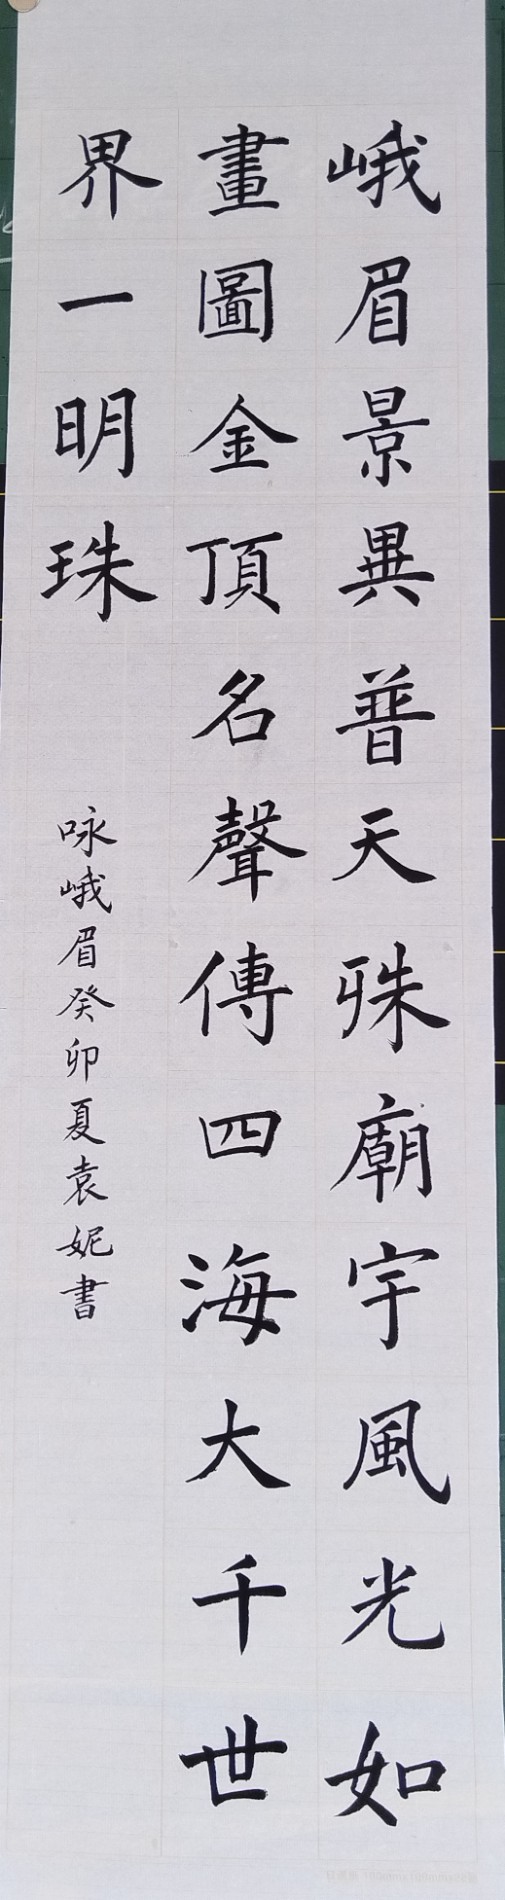 峨眉景異普天殊廟宇風光如
畫圖金頂名聲傳四海大千世
界一明珠
咏峨眉癸卯夏袁妮書